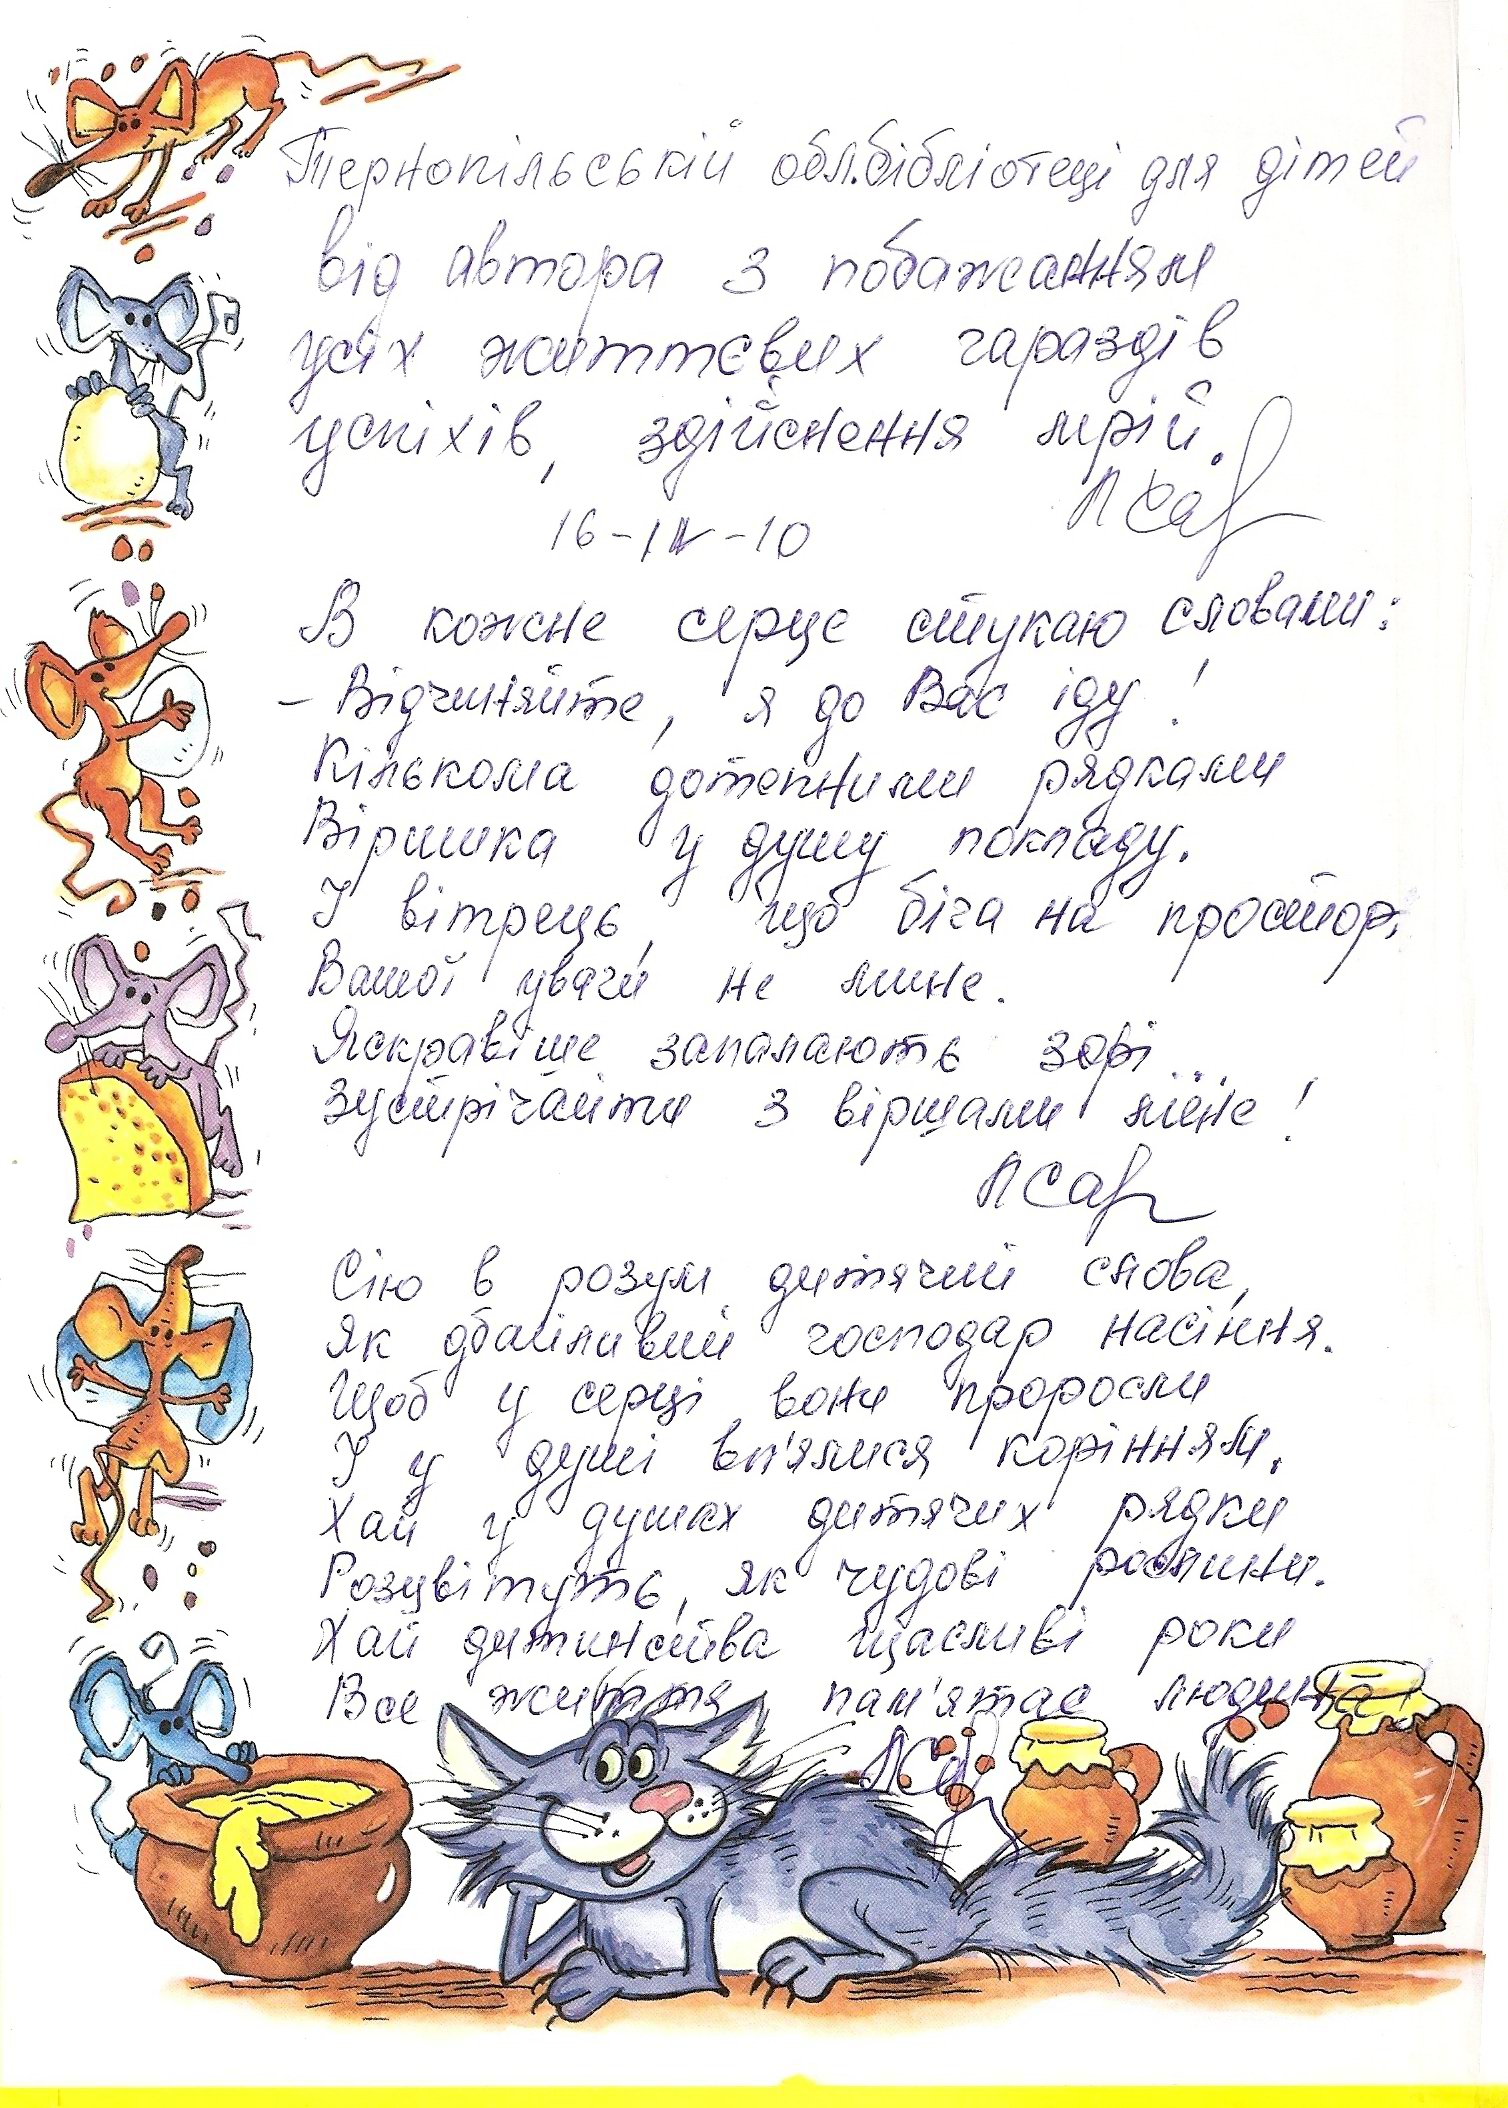 Тернопільській обл.бібліотеці для дітей
від автора з побажанням
усіх життєвих гараздів
успіхів, здійснення мрій.
16-IV-10
В кожне серце стукаю словами:
– Відчиняйте, я до Вас іду!
Кількома дотепними рядками
Віршика у душу покладу.
І вітрець, що біга на просторі,
Вашої уваги не мине.
Яскравіше запалають зорі...
Зустрічайте з віршами мене!
Сію в розум дитячий слова,
Як дбайливий господар насіння.
Щоб у серці вони проросли
І у душі вп'ялися корінням.
Хай у душах дитячих рядки
Розцвітуть, як чудові рослини.
Хай дитинства щасливі роки
Все життя пам'ятає людина!